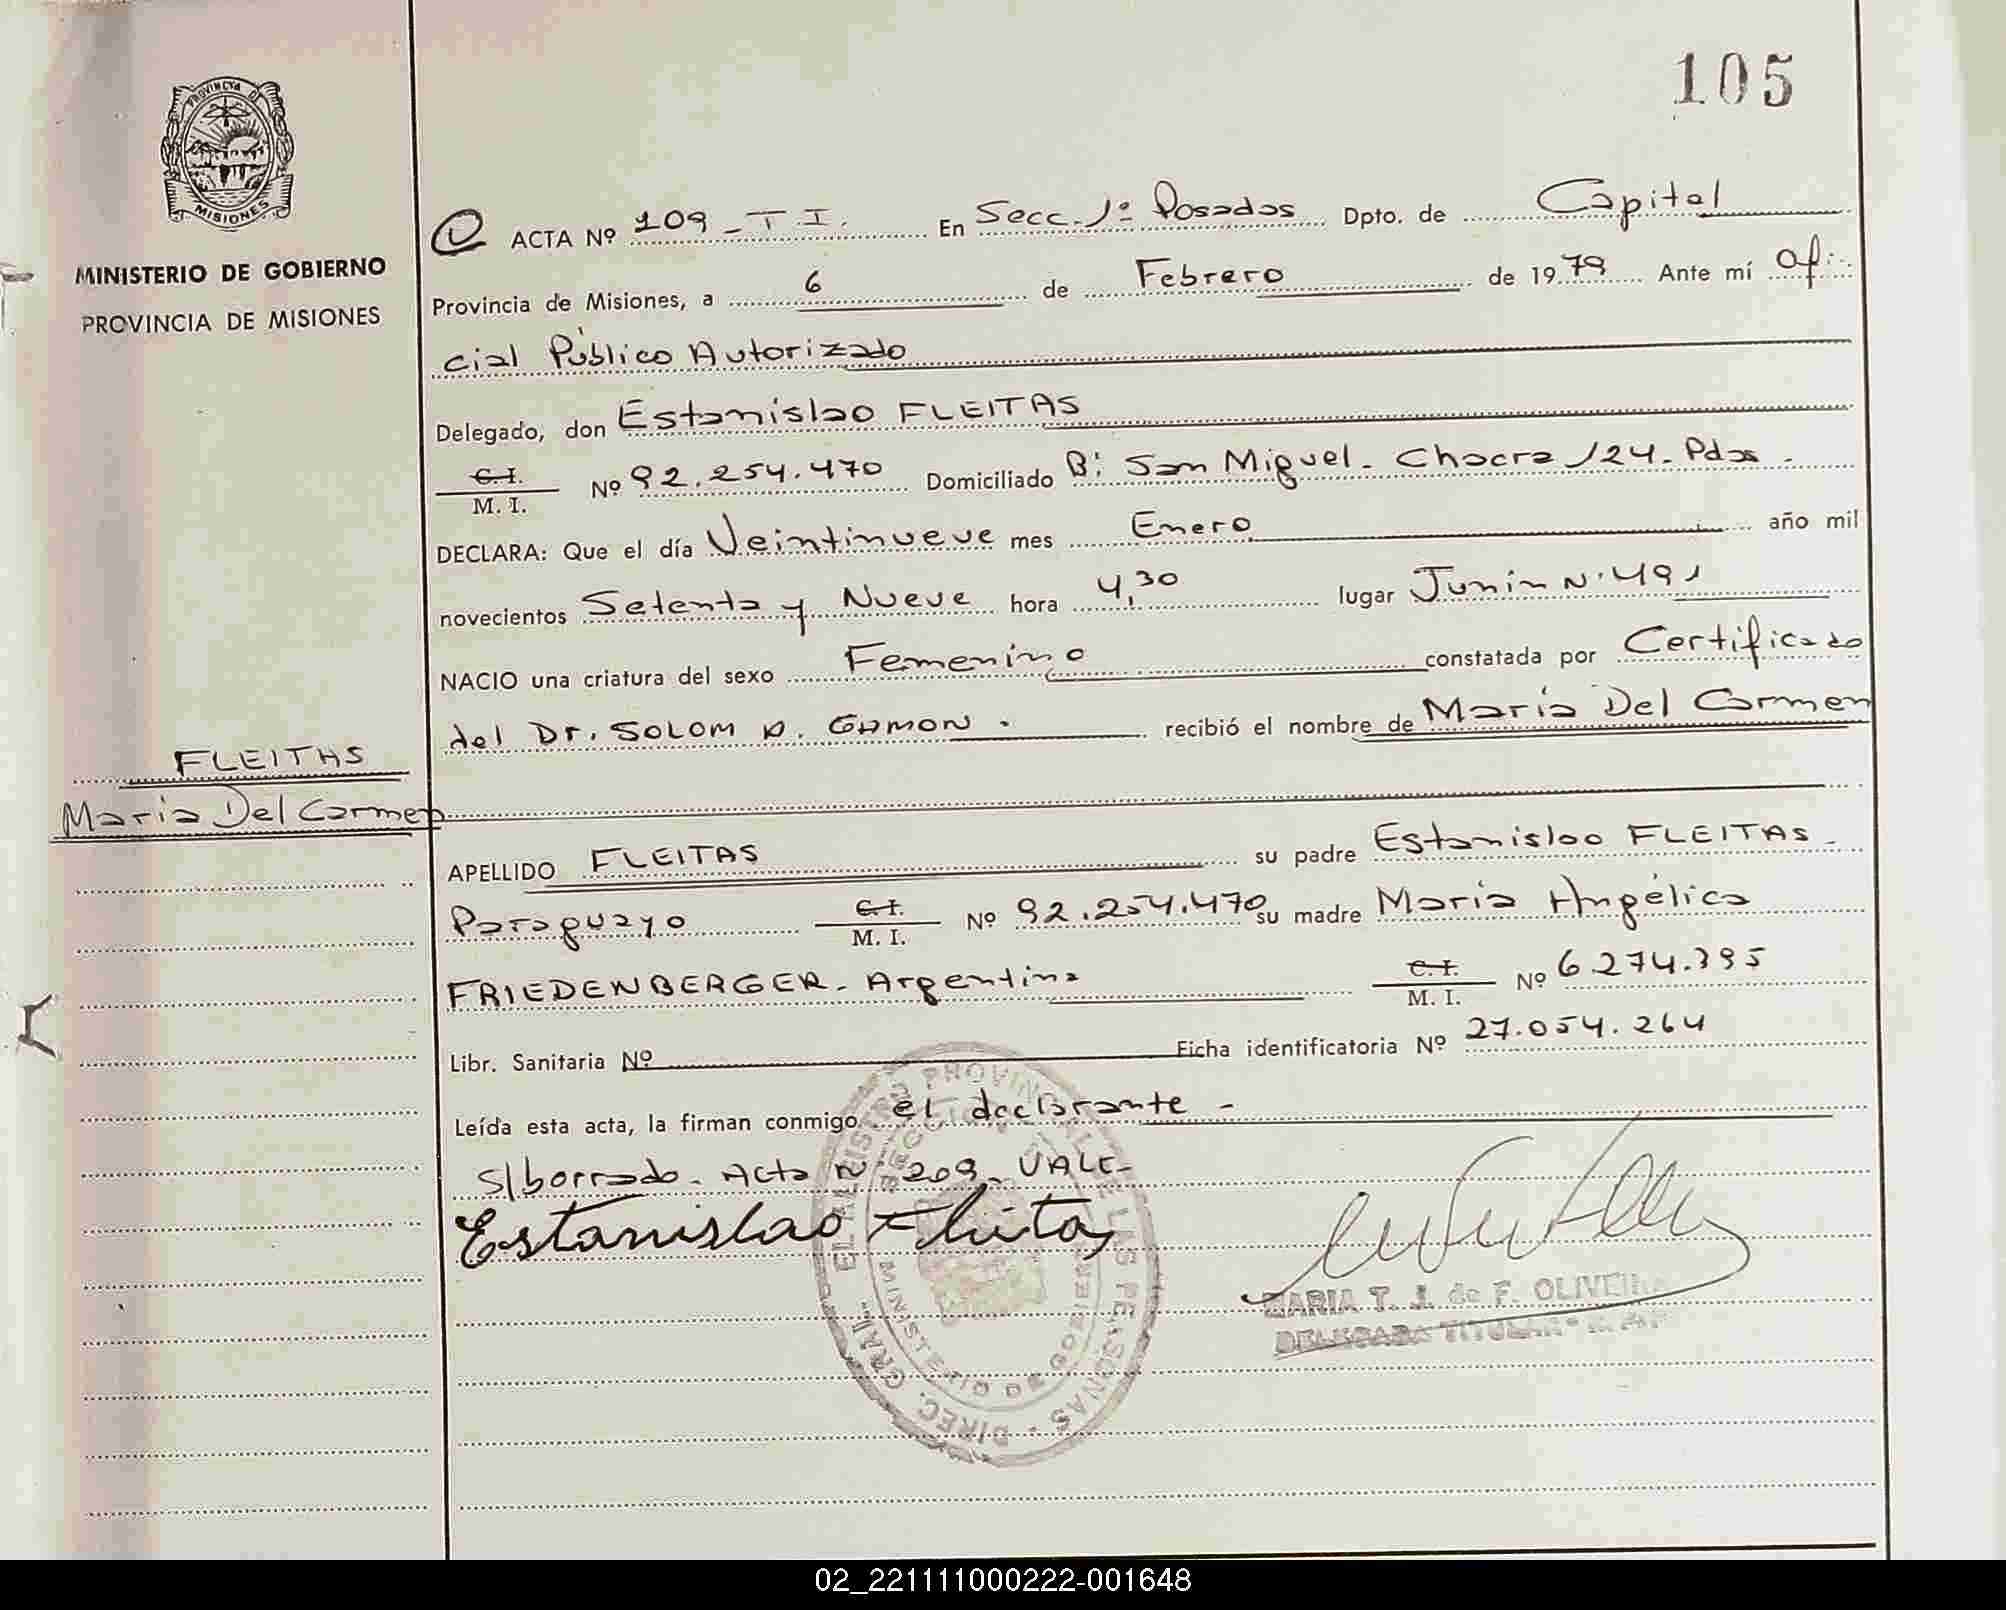 105
PROVINCIA DE
MISIONES
MINISTERIO DE GOBIERNO
PROVINCIA DE MISIONES
ACTA Nº 209 - T I. En Secc. 1º Posadas Dpto. de Capital
Provincia de Misiones, a 6 de Febrero de 1979 Ante mí Ofi-
cial Público Autorizado
Delegado, don Estanislao FLEITAS
C.I.
M. I. Nº 92.254.470 Domiciliado Bº San Miguel - Chacra 124 - Pdas -
DECLARA: Que el día Veintinueve mes Enero año mil
novecientos Setenta y Nueve hora 4,30 lugar Junín Nº 491
NACIO una criatura del sexo Femenino constatada por Certificado
del Dr. SOLOM A. GAMON. recibió el nombre de María Del Carmen
FLEITAS
María Del Carmen
APELLIDO FLEITAS su padre Estanislao FLEITAS -
Paraguayo C.I.
M. I. Nº 92.254.470 su madre María Angélica
FRIEDENBERGER - Argentina C.I.
M. I. Nº 6.274.395
Libr. Sanitaria Nº Ficha identificatoria Nº 27.054.264
Leída esta acta, la firman conmigo el declarante -
S/borrado - Acta Nº 209 - VALE -
Estanislao Fleitas
MARIA T. J. de F. OLIVEIRA
DELEGADA TITULAR
DIREC. GRAL. REGISTRO PROVINCIAL DE LAS PERSONAS
MINISTERIO DE GOBIERNO
02_221111000222-001648